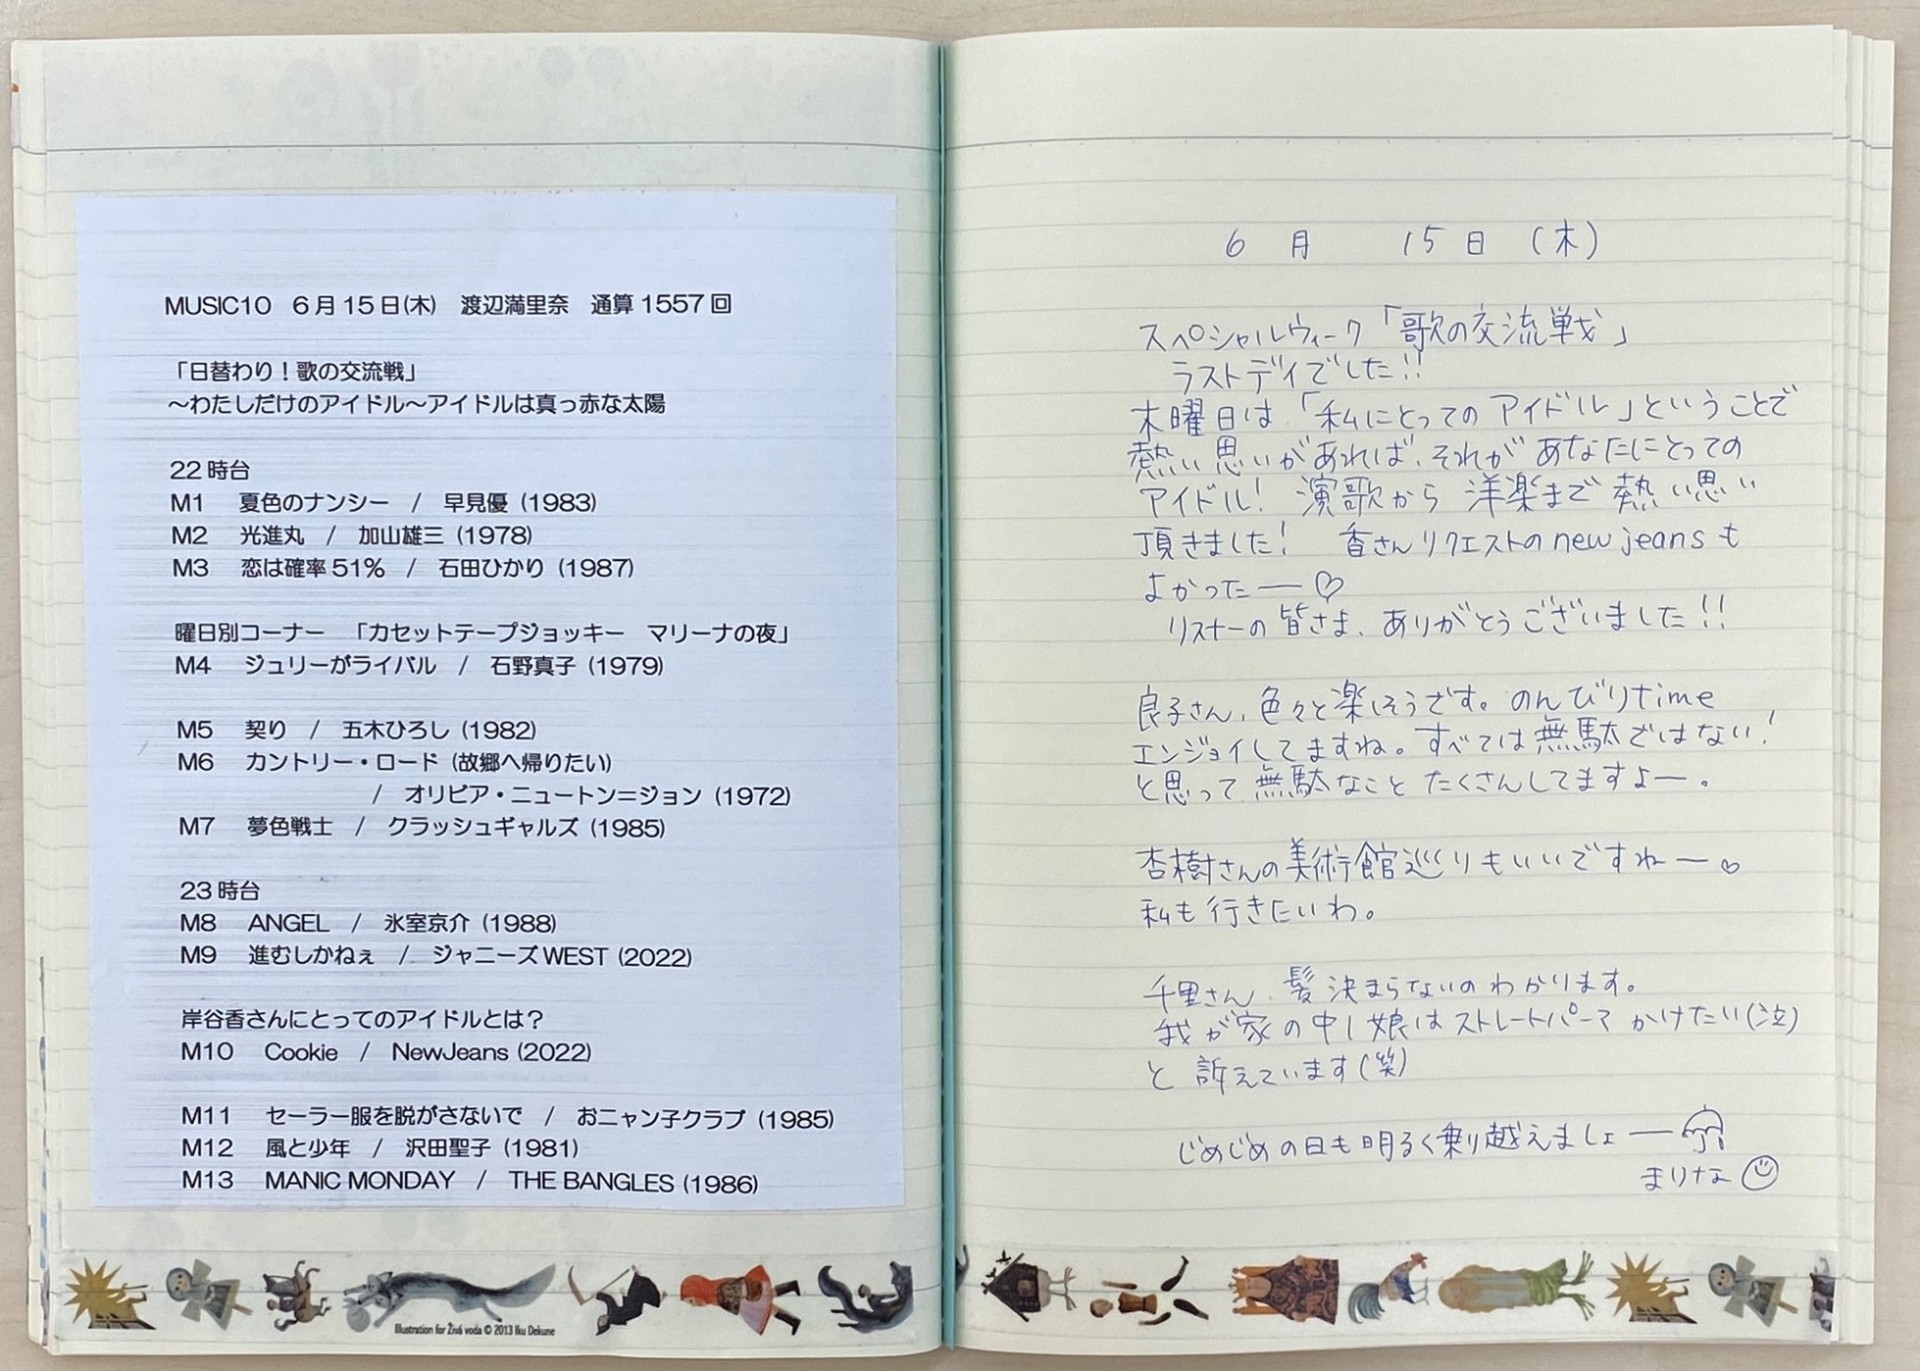 MUSIC10　6月15日(木)　渡辺満里奈　通算1557回
「日替わり！歌の交流戦」
～わたしだけのアイドル～アイドルは真っ赤な太陽
22時台
M1　夏色のナンシー　/　早見優 (1983)
M2　光進丸　/　加山雄三 (1978)
M3　恋は確率51%　/　石田ひかり (1987)
曜日別コーナー　「カセットテープジョッキー　マリーナの夜」
M4　ジュリーがライバル　/　石野真子 (1979)
M5　契り　/　五木ひろし (1982)
M6　カントリー・ロード (故郷へ帰りたい)
/　オリビア・ニュートン=ジョン (1972)
M7　夢色戦士　/　クラッシュギャルズ (1985)
23時台
M8　ANGEL　/　氷室京介 (1988)
M9　進むしかねぇ　/　ジャニーズWEST (2022)
岸谷香さんにとってのアイドルとは？
M10　Cookie　/　NewJeans (2022)
M11　セーラー服を脱がさないで　/　おニャン子クラブ (1985)
M12　風と少年　/　沢田聖子 (1981)
M13　MANIC MONDAY　/　THE BANGLES (1986)
Illustration for Živá voda © 2013 Iku Dekune
6月　15日（木）
スペシャルウィーク「歌の交流戦」
ラストデイでした!!
木曜日は「私にとってのアイドル」ということで
熱い思いがあれば、それがあなたにとっての
アイドル！演歌から洋楽まで熱い思い
頂きました！　香さんリクエストのnew jeansも
よかったー♡
リスナーの皆さま、ありがとうございました!!
良子さん、色々と楽しそうです。のんびりtime
エンジョイしてますね。すべては無駄ではない！
と思って無駄なことたくさんしてますよー。
杏樹さんの美術館巡りもいいですねー♡
私も行きたいわ。
千里さん、髪決まらないのわかります。
我が家の中1娘はストレートパーマかけたい(泣)
と訴えています(笑)
じめじめの日も明るく乗り越えましょー
まりな